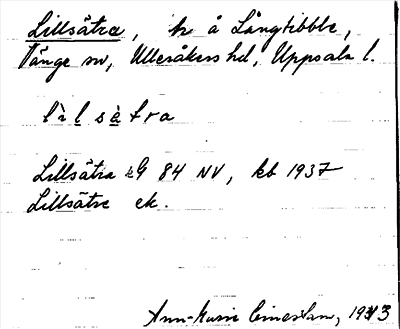 Lillsätra, hr å Långtibble,
Vänge sn, Ulleråkers hd, Uppsala l.
l ì l s è t r a
Lillsätra EG 84 NV, kb 1937
Lillsätre ek.
Ann-Marie 1943